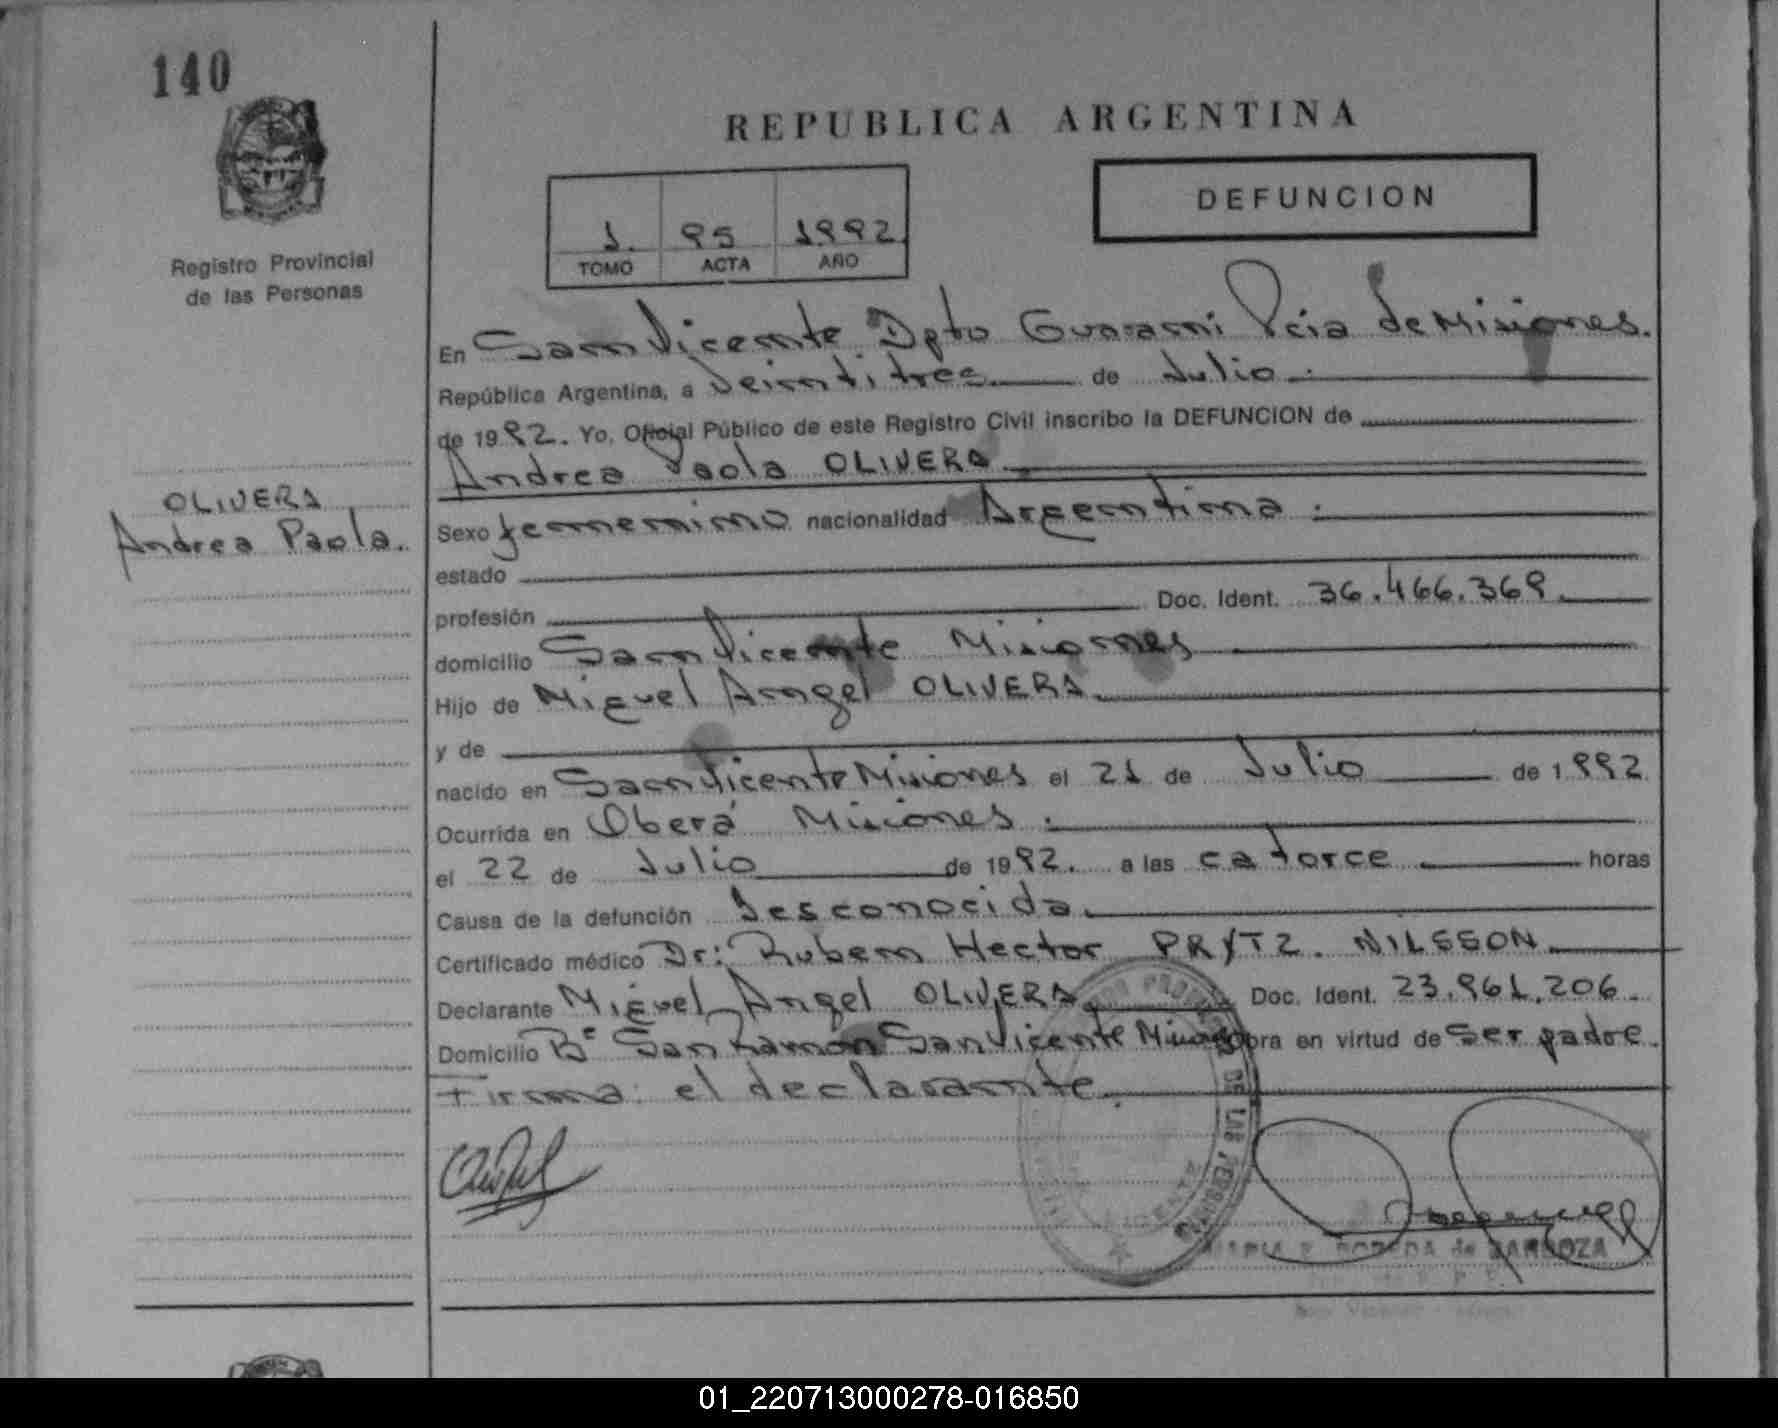 140
REPUBLICA ARGENTINA
DEFUNCION
1. 95 1992
TOMO ACTA AÑO
Registro Provincial
de las Personas
En San Vicente Dpto Guarani Pcia de Misiones.
República Argentina, a Veintitres de Julio.
de 1992. Yo, Oficial Público de este Registro Civil inscribo la DEFUNCION de
Andrea Paola OLIVERA
OLIVERA
Andrea Paola.
Sexo femenino nacionalidad Argentina.
estado
profesión Doc. Ident. 36.466.369.
domicilio San Vicente Misiones
Hijo de Miguel Angel OLIVERA
y de
nacido en San Vicente Misiones el 21 de Julio de 1.992
Ocurrida en Oberá Misiones.
el 22 de Julio de 1992. a las catorce horas
Causa de la defunción Desconocida.
Certificado médico Dr: Ruben Hector PRYTZ. NILSSON
Declarante Miguel Angel OLIVERA Doc. Ident. 23.961.206.
Domicilio Bº San Ramon San Vicente Misiones obra en virtud de ser padre.
Firma: el declarante.
DE LAS PERSONAS
VICENTE
MARIA de
01_220713000278-016850